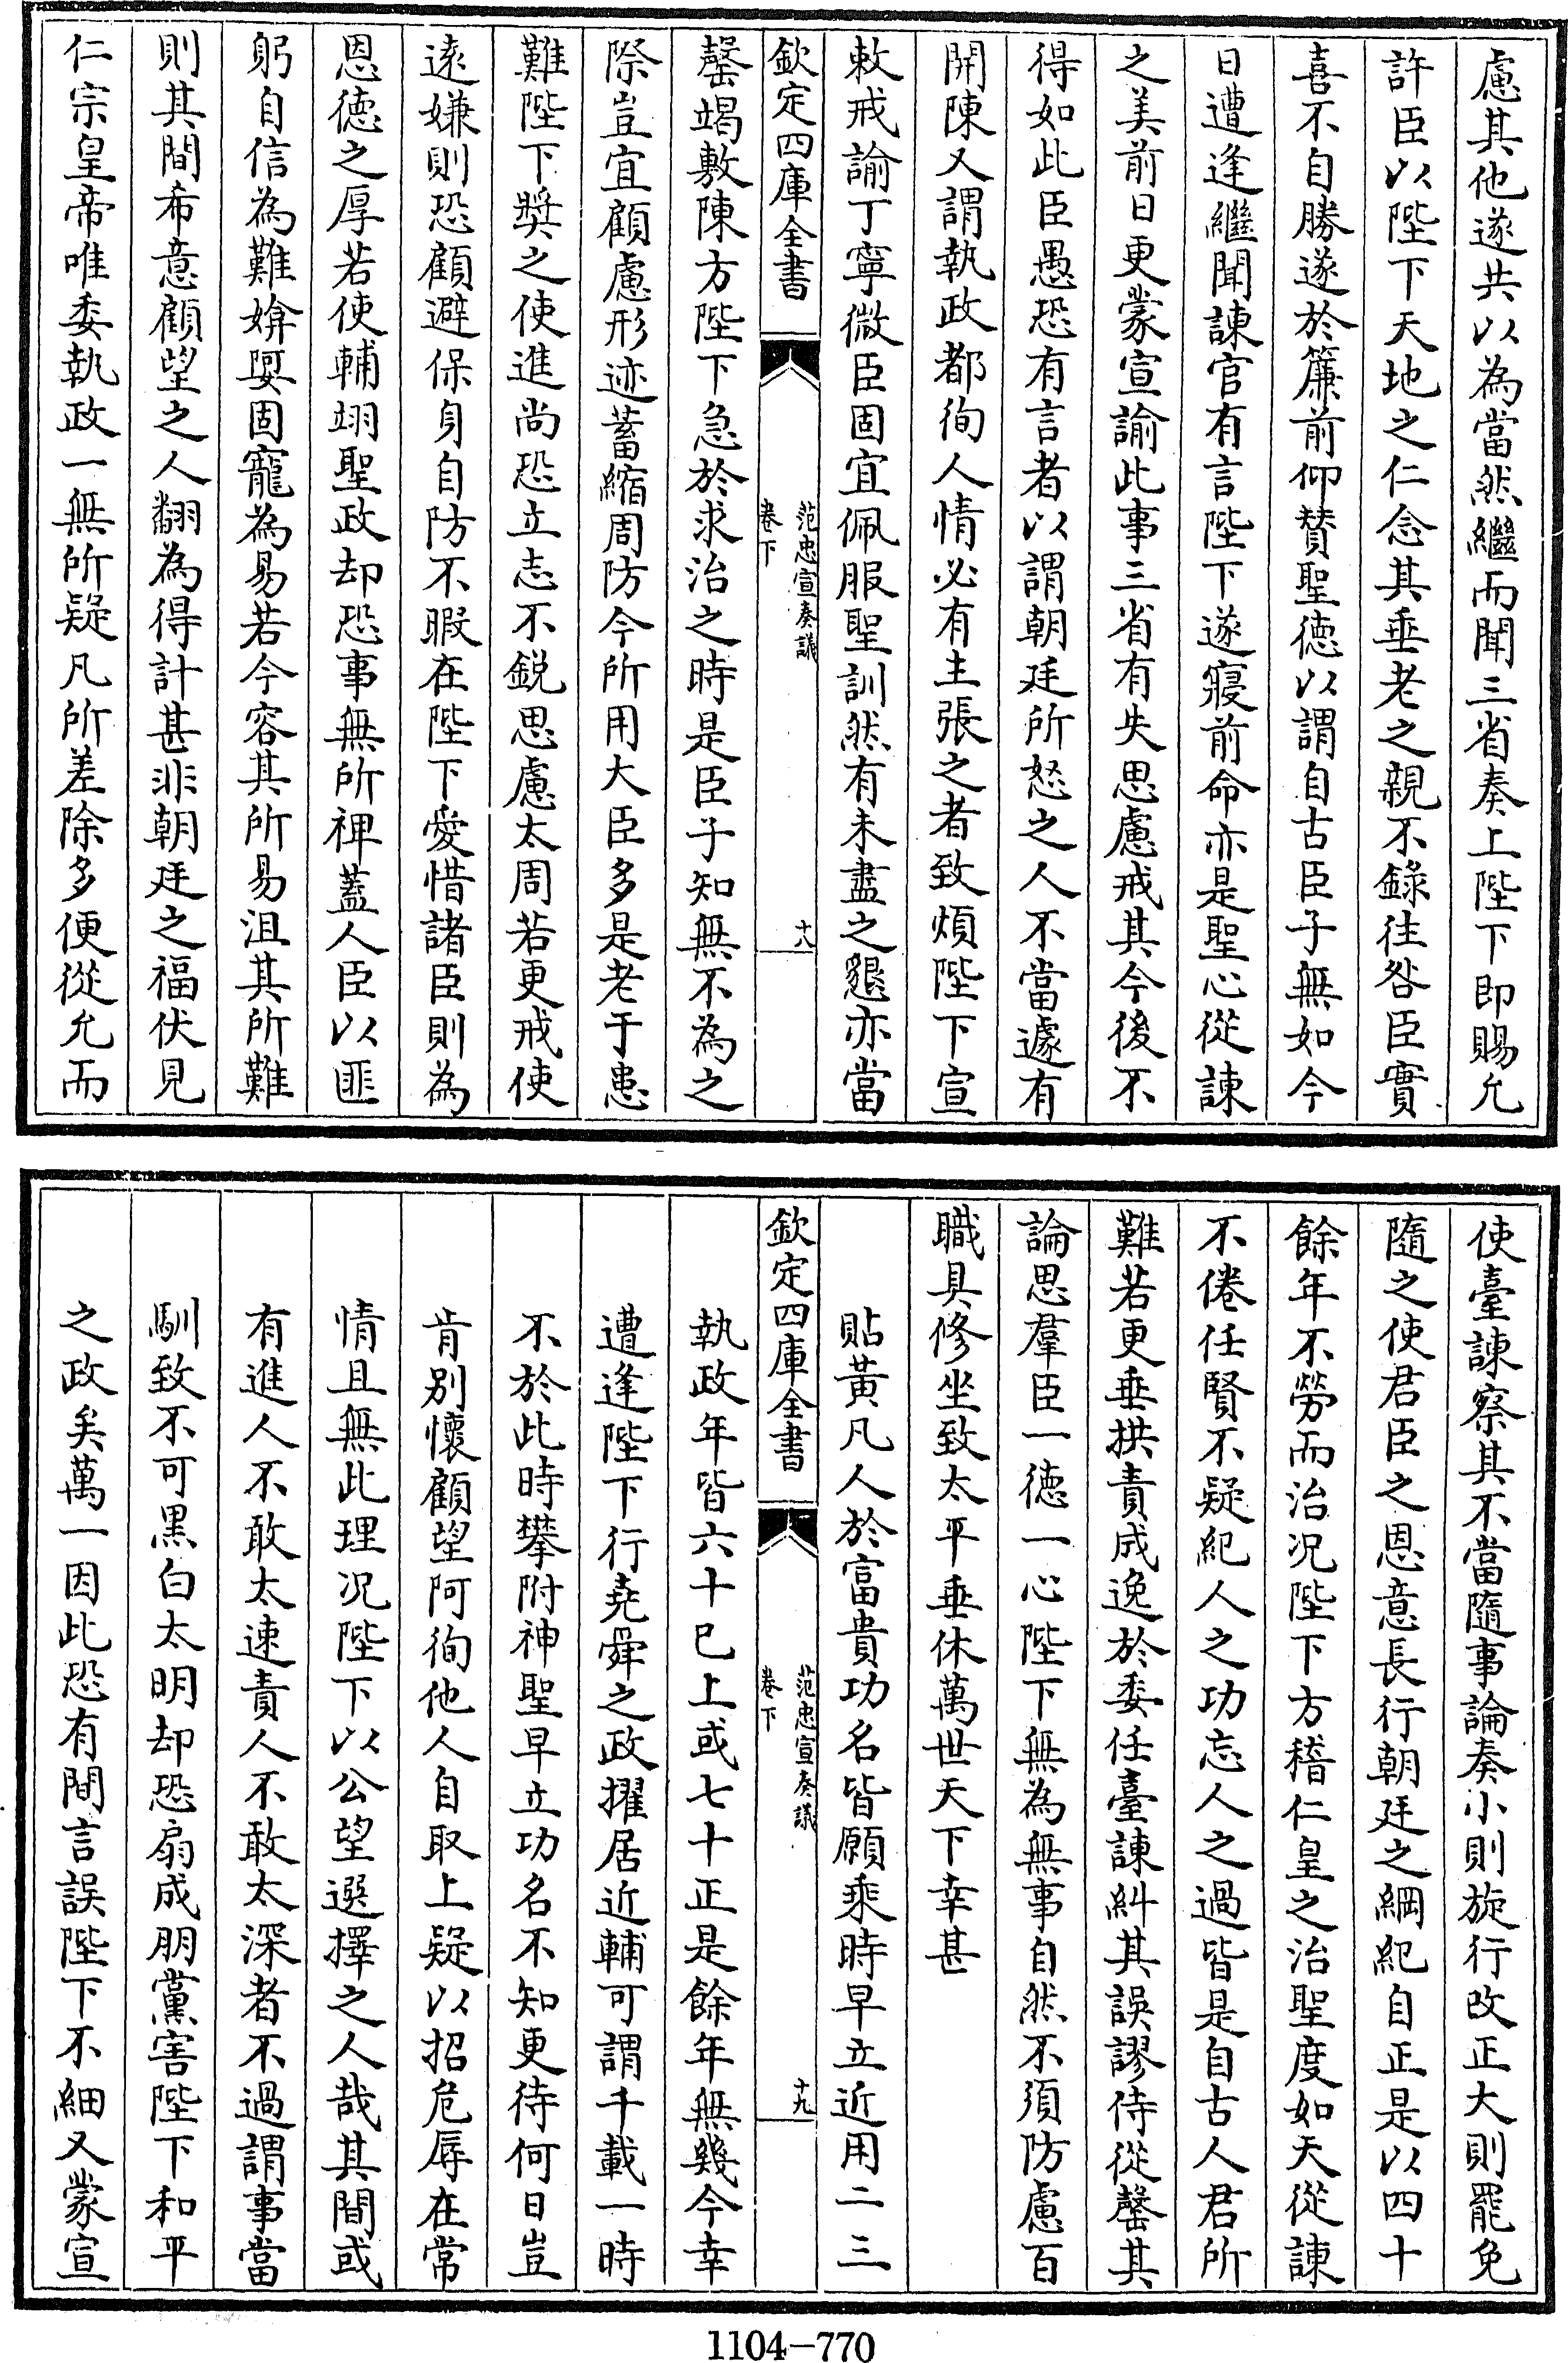 慮其他遂共以為當然繼而聞三省奏上陛下即賜允
許臣以陛下天地之仁念其垂老之親不錄往咎臣實
喜不自勝遂於簾前仰賛聖徳以謂自古臣子無如今
日遭逢繼聞諌官有言陛下遂寢前命亦是聖心從諌
之美前日更蒙宣諭此事三省有失思慮戒其今後不
得如此臣愚恐有言者以謂朝廷所怒之人不當遽有
開陳又謂執政都徇人情必有主張之者致煩陛下宣
敕戒諭丁寧微臣固宜佩服聖訓然有未盡之懇亦當
欽定四庫全書
范忠宣奏議
卷下
十八
罄竭敷陳方陛下急於求治之時是臣子知無不為之
際豈宜顧慮形迹蓄縮周防今所用大臣多是老于患
難陛下奬之使進尚恐立志不銳思慮太周若更戒使
逺嫌則恐顧避保身自防不暇在陛下愛惜諸臣則為
恩徳之厚若使輔翊聖政却恐事無所裨蓋人臣以匪
躬自信為難媕婴固寵為易若今容其所易沮其所難
則其間希意顧望之人翻為得計甚非朝廷之福伏見
仁宗皇帝唯委執政一無所疑凡所差除多便從允而
使臺諌察其不當隨事論奏小則旋行改正大則罷免
隨之使君臣之恩意長行朝廷之綱紀自正是以四十
餘年不勞而治况陛下方稽仁皇之治聖度如天從諌
不倦任賢不疑紀人之功忘人之過皆是自古人君所
難若更垂拱責成逸於委任臺諌糾其誤謬侍從罄其
論思羣臣一徳一心陛下無為無事自然不須防慮百
職具修坐致太平垂休萬世天下幸甚
貼黄凡人於富貴功名皆願乘時早立近用二三
欽定四庫全書
范忠宣奏議
卷下
十九
執政年皆六十已上或七十正是餘年無幾今幸
遭逢陛下行堯舜之政擢居近輔可謂千載一時
不於此時攀附神聖早立功名不知更待何日豈
肯别懷顧望阿徇他人自取上疑以招危辱在常
情且無此理况陛下以公望選擇之人哉其間或
有進人不敢太速責人不敢太深者不過謂事當
馴致不可黒白太明却恐扇成朋黨害陛下和平
之政矣萬一因此恐有間言誤陛下不細又蒙宣
1104-770